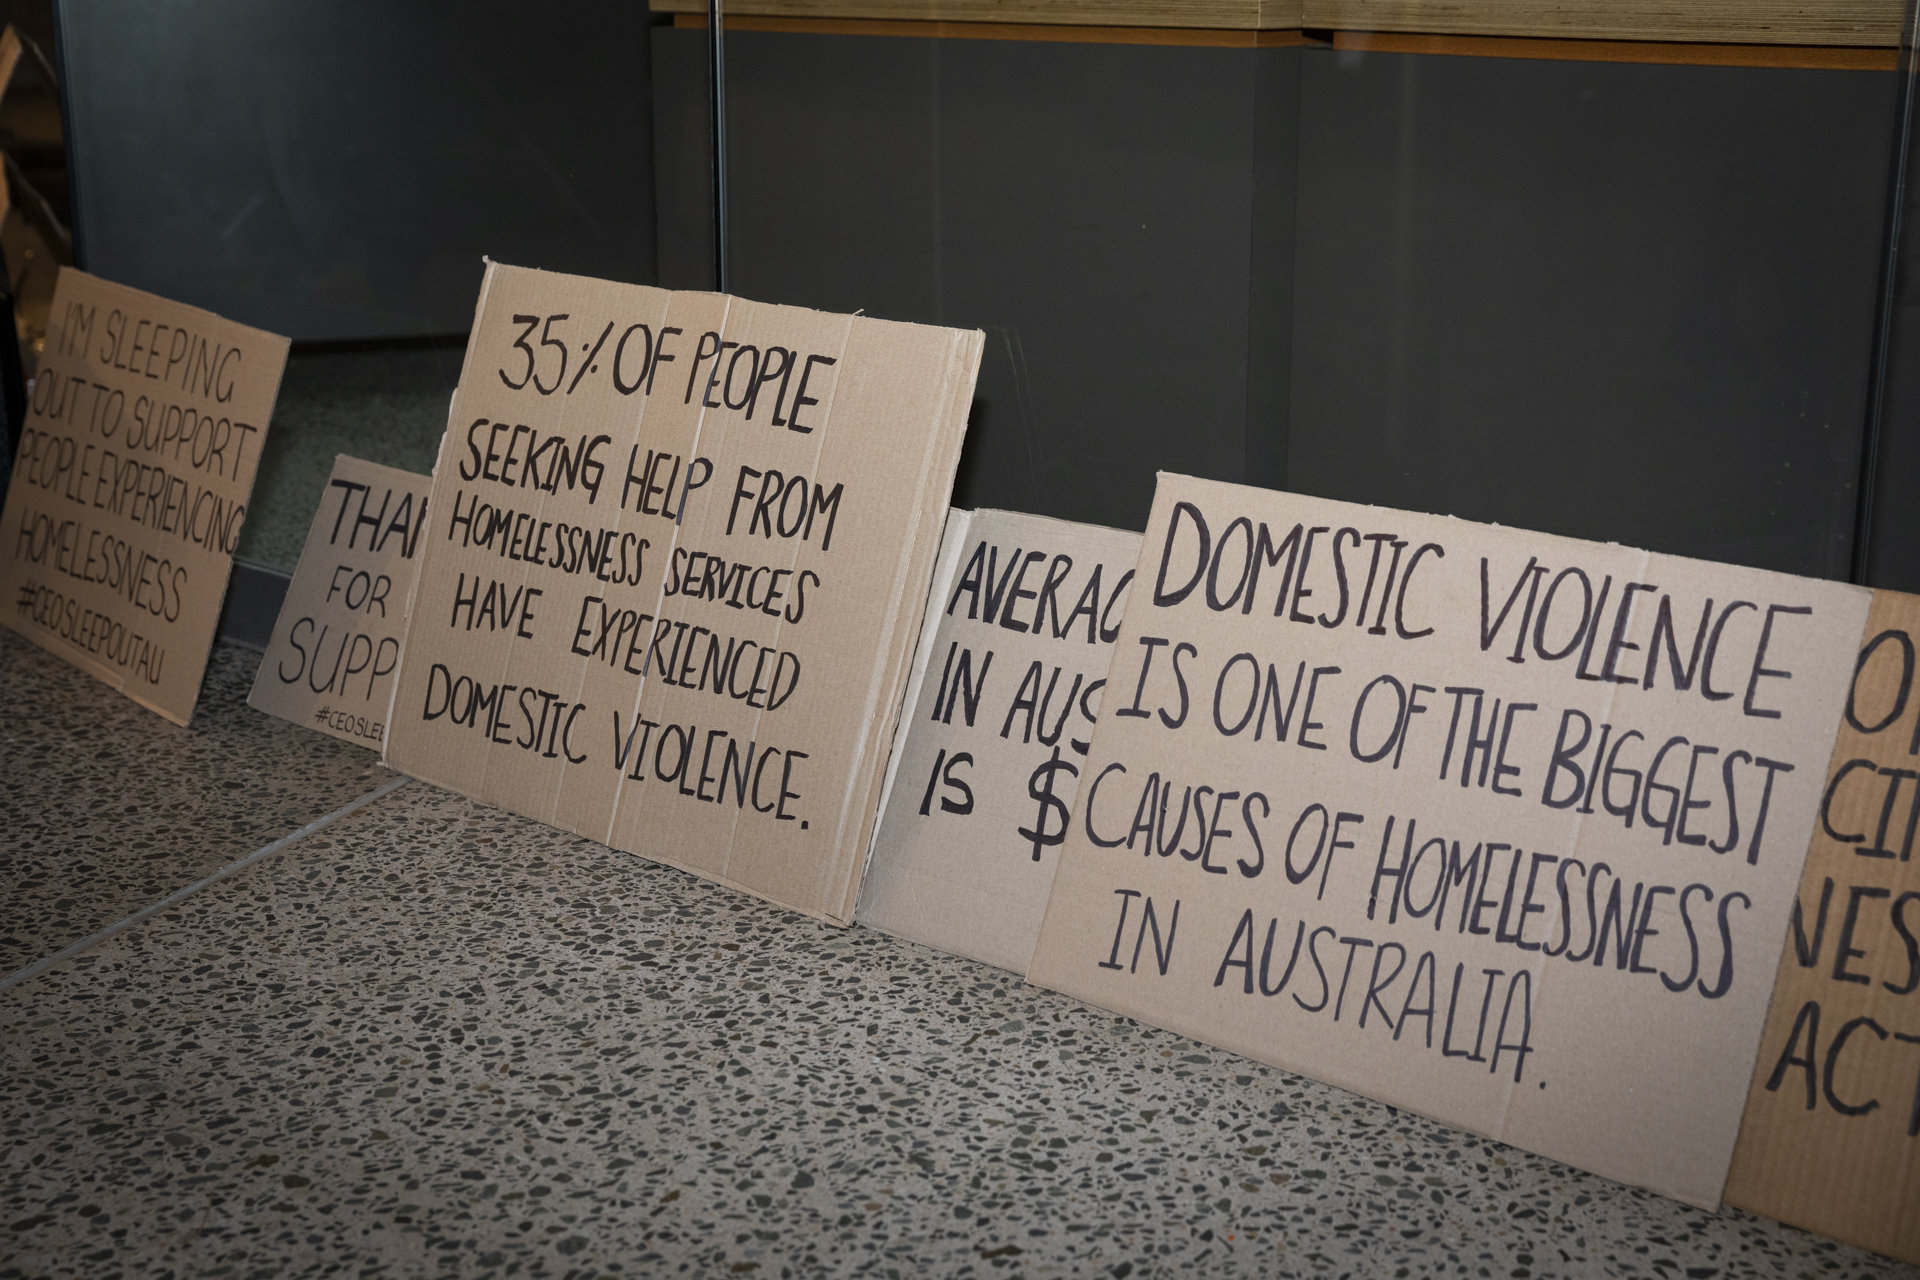 I'M SLEEPING
OUT TO SUPPORT
PEOPLE EXPERIENCING
HOMELESSNESS
#CEOSLEEPOUTAU
FOR
35% OF PEOPLE
SEEKING HELP FROM
HOMELESSNESS SERVICES
HAVE EXPERIENCED
DOMESTIC VIOLENCE.
IN
IS $
DOMESTIC VIOLENCE
IS ONE OF THE BIGGEST
CAUSES OF HOMELESSNESS
IN AUSTRALIA.